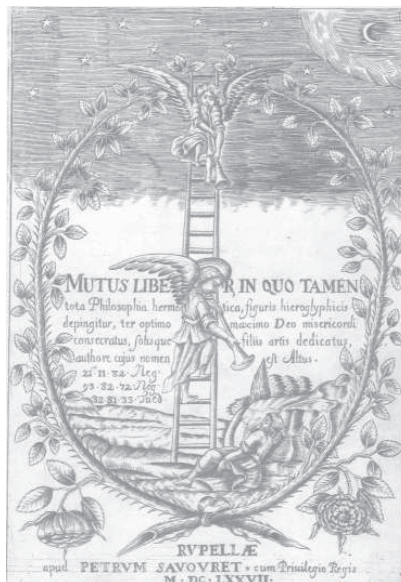 MUTUS LIBER, IN QUO TAMEN
tota Philosophia hermetica, figuris hieroglyphicis
depingitur, ter optimo maximo Deo misericordi
consecratus, solisque filiis artis dedicatus,
authore cujus nomen est Altus.
21·11·82·Neg:
93·82·72·Neg:
82·81·33·Tued
RVPELLÆ
apud PETRVM SAVOVRET · cum Privilegio Regis
M·DC·LXXVII: